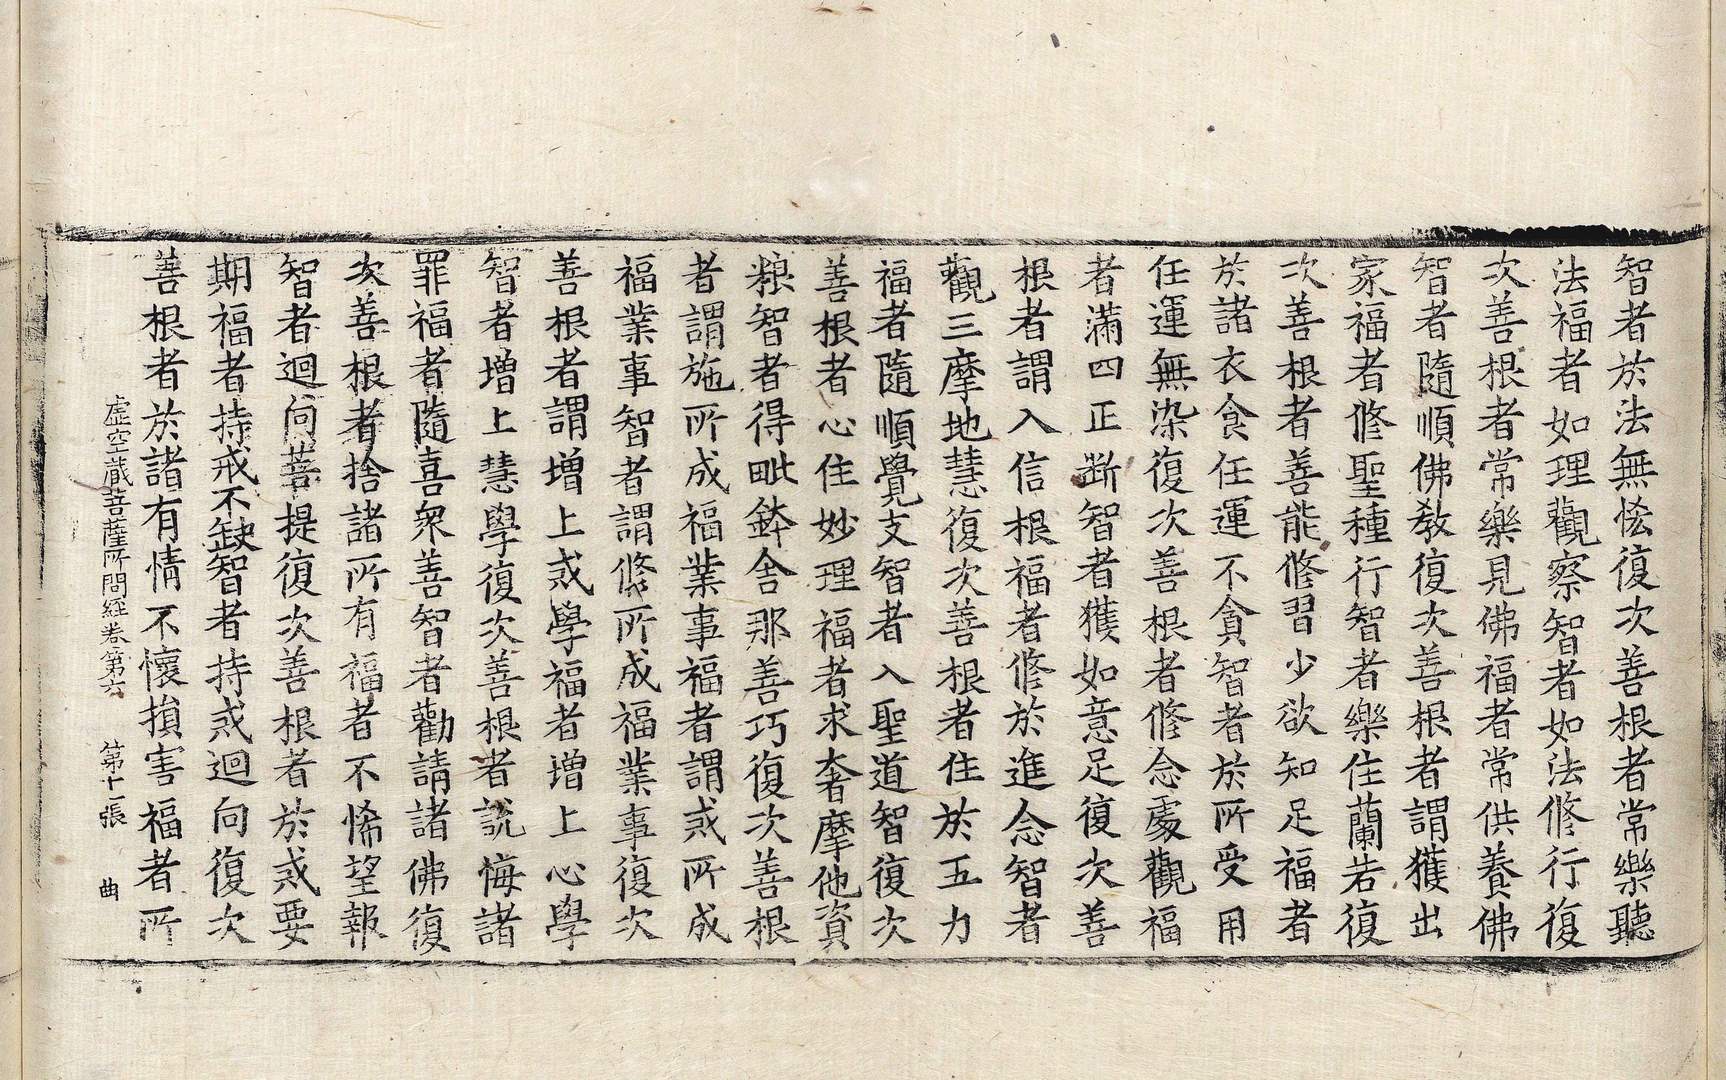 智者於法無恡復次善根者常樂聽
法福者如理觀察智者如法修行復
次善根者常樂見佛福者常供養佛
智者隨順佛教復次善根者謂獲出
家福者修聖種行智者樂住蘭若復
次善根者善能修習少欲知足福者
於諸衣食任運不貪智者於所受用
任運無染復次善根者修念處觀福
者滿四正断智者獲如意足復次善
根者謂入信根福者修於進念智者
觀三摩地慧復次善根者住於五力
福者隨順覺支智者入聖道智復次
善根者心住妙理福者求奢摩他資
粮智者得毗鉢舍那善巧復次善根
者謂施所成福業事福者謂戒所成
福業事智者謂修所成福業事復次
善根者謂增上戒學福者增上心學
智者增上慧學復次善根者說悔諸
罪福者隨喜衆善智者勸請諸佛復
次善根者捨諸所有福者不悕望報
智者迴向菩提復次善根者於戒要
期福者持戒不缺智者持戒迴向復次
善根者於諸有情不懷損害福者所
虛空藏菩薩所問經卷第六 第十一張 曲